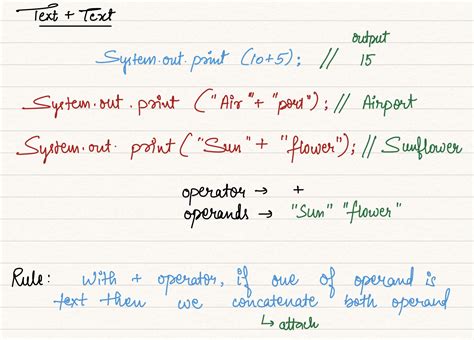 Text + Text
output
System.out.print (10+5); // 15
System.out.print ("Air" + "port"); // Airport
System.out.print ("Sun" + "flower"); // Sunflower
operator → +
operands → "Sun" "flower"
Rule: With + operator, if one of operand is
text then we concatenate both operand
↳ attach